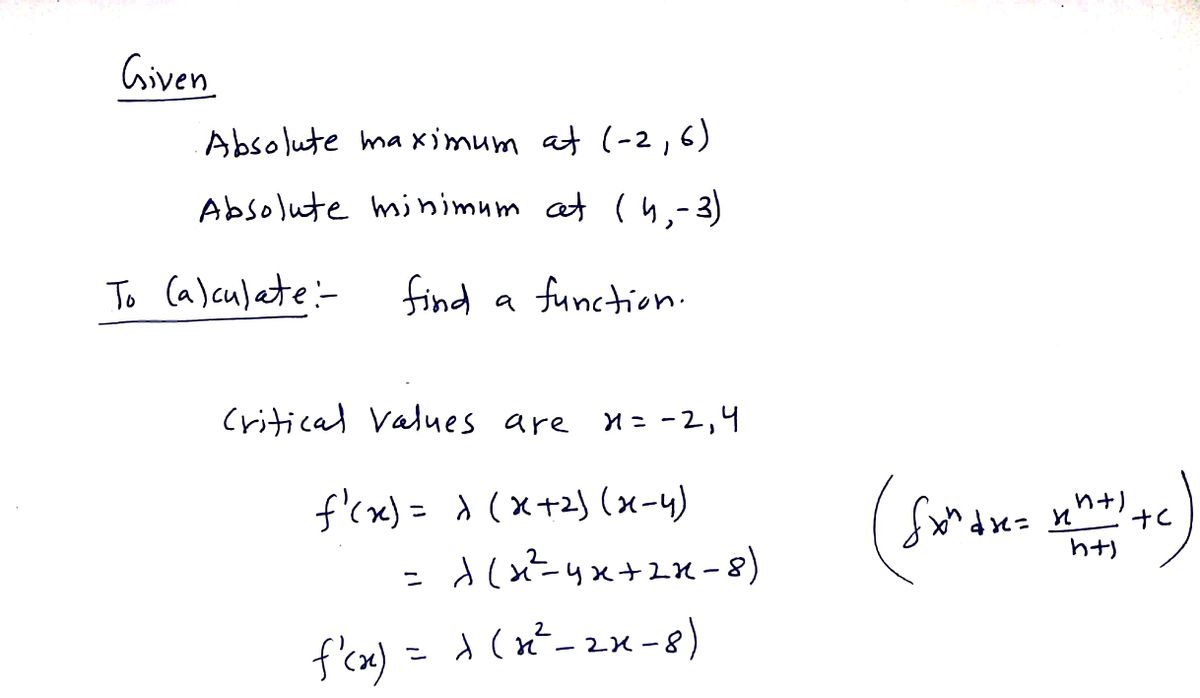 Given
Absolute maximum at (-2, 6)
Absolute minimum at (4, -3)
To Calculate:- find a function.
Critical Values are x = -2, 4
f'(x) = λ (x+2) (x-4)
(∫xⁿ dx = xⁿ⁺¹/n+1 + c)
= λ (x² - 4x + 2x - 8)
f'(x) = λ (x² - 2x - 8)